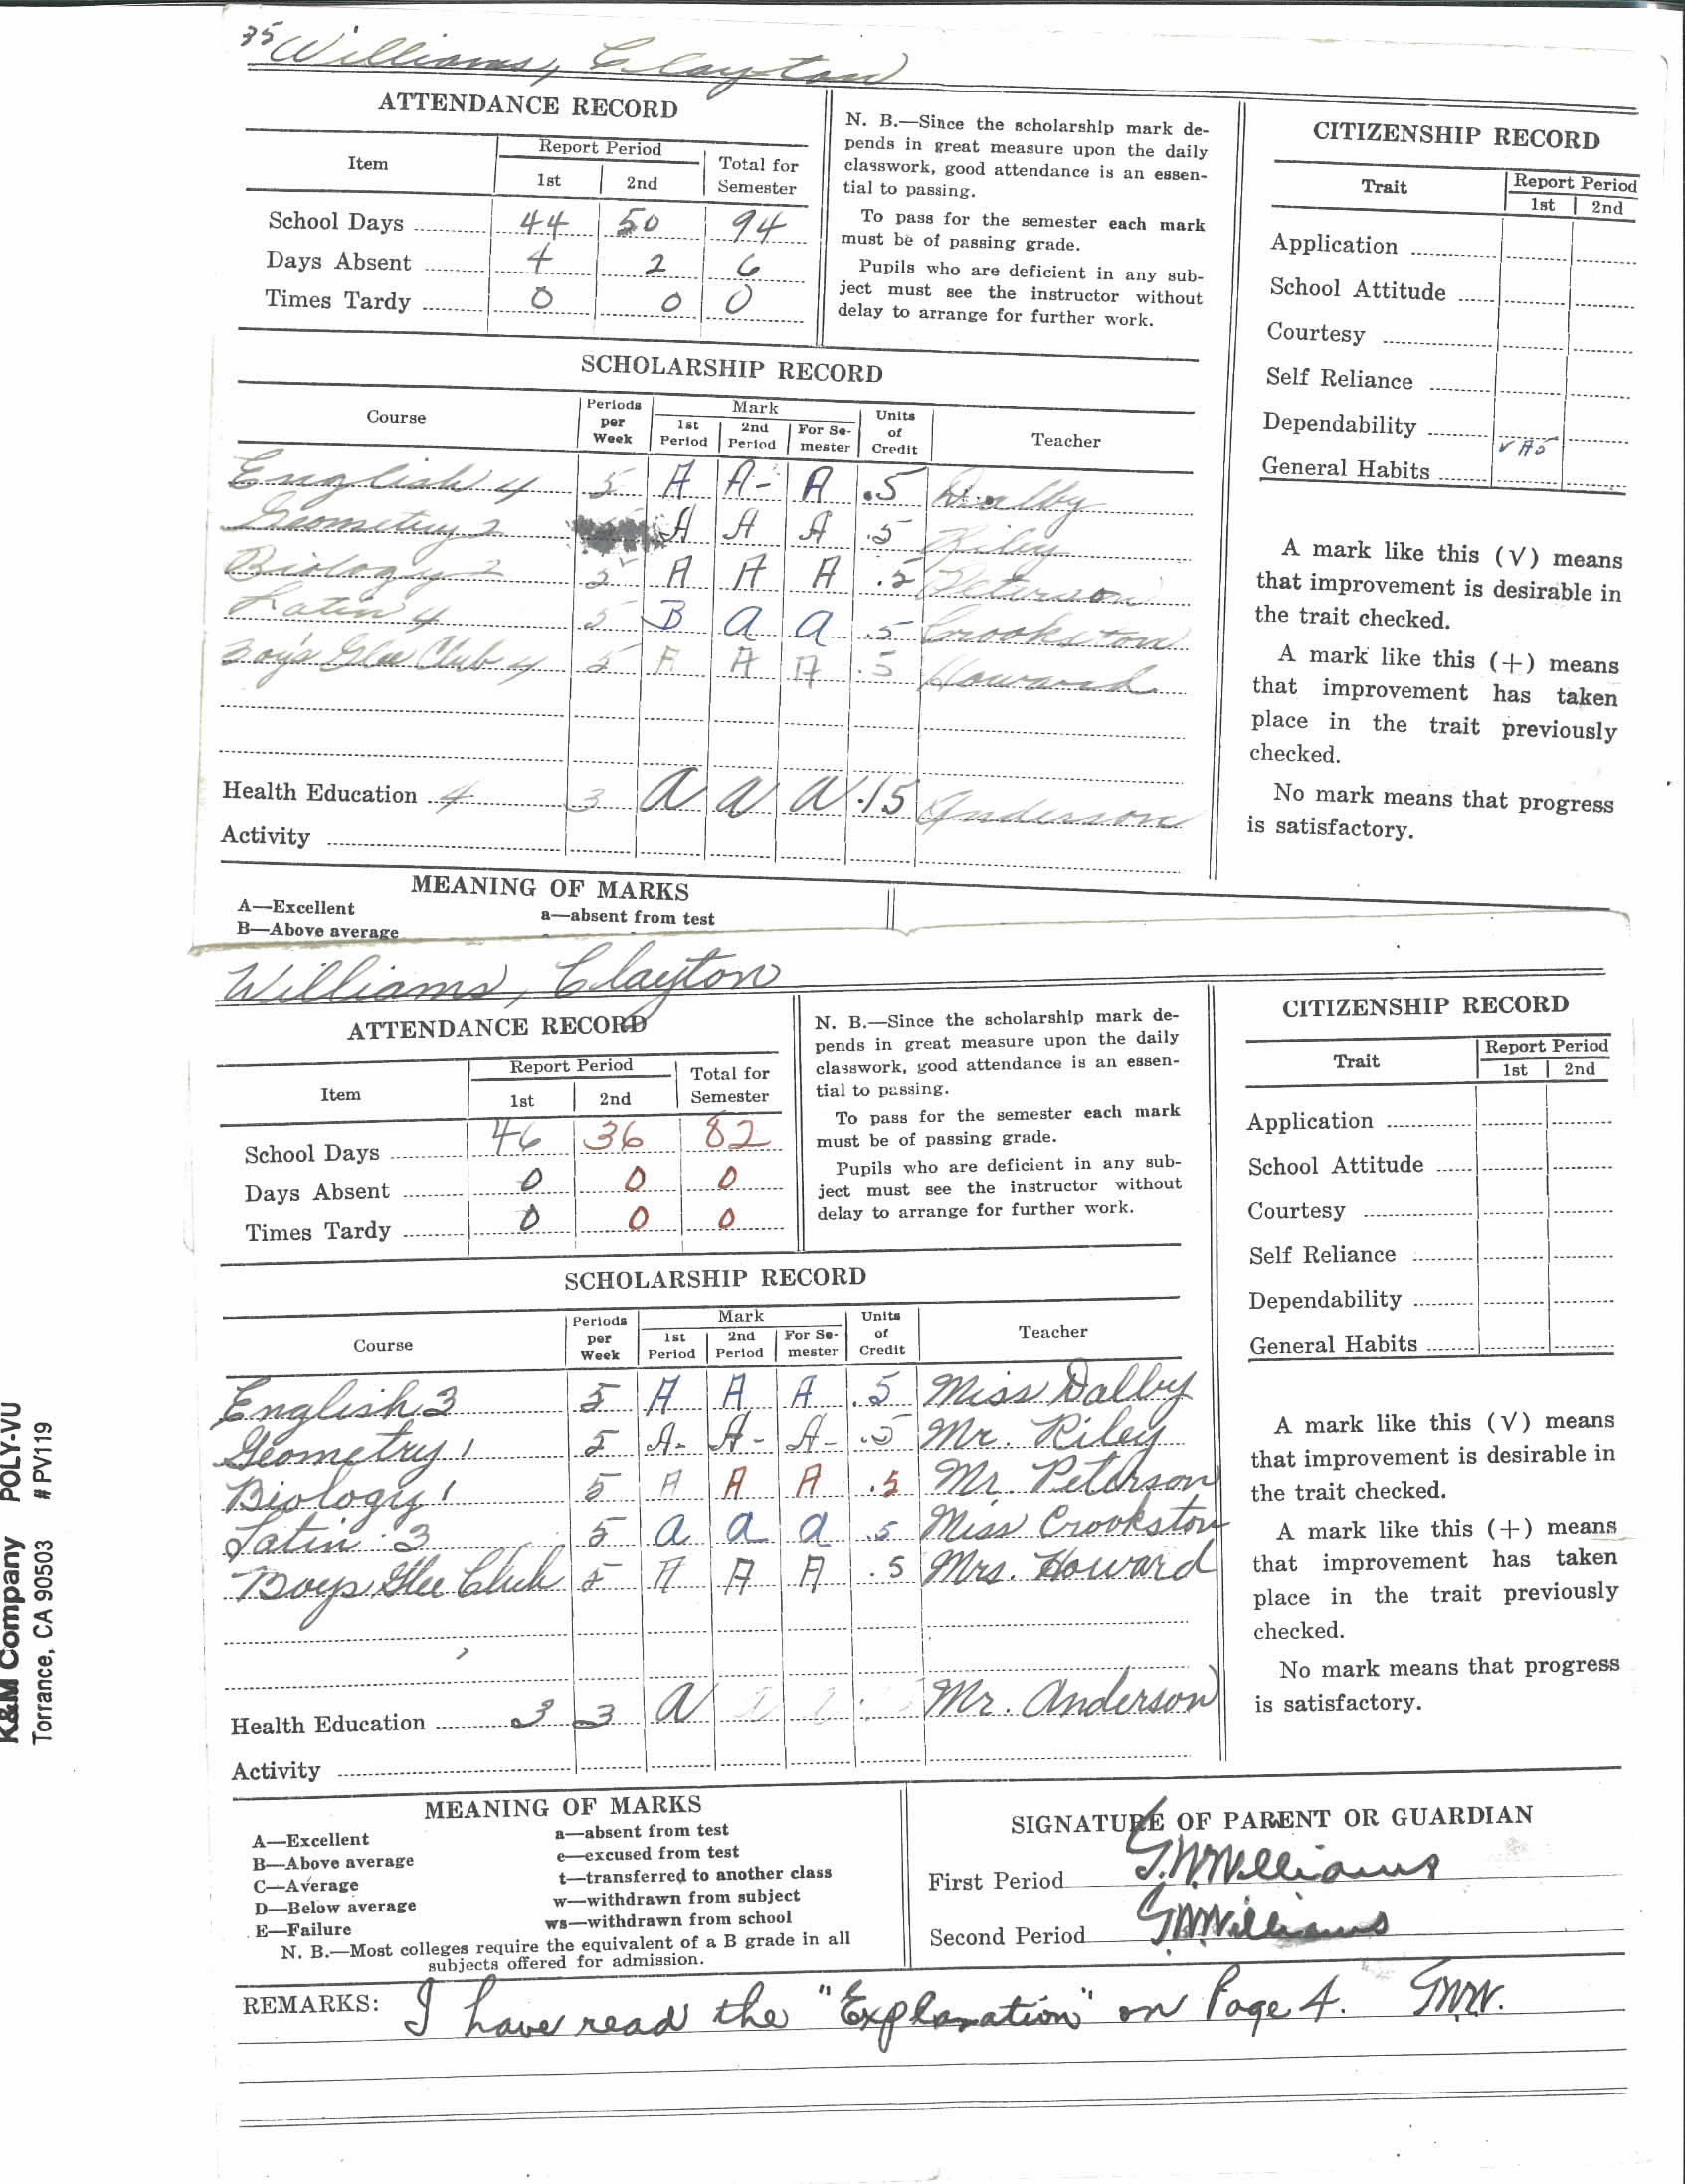 35 Williams, Clayton
ATTENDANCE RECORD
Item Report Period Total for Semester
1st 2nd
School Days 44 50 94
Days Absent 4 2 6
Times Tardy 0 0 0
N. B.—Since the scholarship mark de-
pends in great measure upon the daily
classwork, good attendance is an essen-
tial to passing.
To pass for the semester each mark
must be of passing grade.
Pupils who are deficient in any sub-
ject must see the instructor without
delay to arrange for further work.
SCHOLARSHIP RECORD
Course Periods per Week Mark Units of Credit Teacher
1st Period 2nd Period For Se-mester
English 4 5 A A- A .5 Dalby
Geometry 2 A A A .5 Riley
Biology 2 5 A A A .5 Peterson
Latin 4 5 B a a .5 Crookston
Boy's Glee Club 4 5 A A A .5 Howard
Health Education 4 3 a a a .15 Anderson
Activity
MEANING OF MARKS
A—Excellent a—absent from test
B—Above average
CITIZENSHIP RECORD
Trait Report Period
1st 2nd
Application
School Attitude
Courtesy
Self Reliance
Dependability
General Habits √
A mark like this (√) means
that improvement is desirable in
the trait checked.
A mark like this (+) means
that improvement has taken
place in the trait previously
checked.
No mark means that progress
is satisfactory.
Williams, Clayton
ATTENDANCE RECORD
Item Report Period Total for Semester
1st 2nd
School Days 46 36 82
Days Absent 0 0 0
Times Tardy 0 0 0
N. B.—Since the scholarship mark de-
pends in great measure upon the daily
classwork, good attendance is an essen-
tial to passing.
To pass for the semester each mark
must be of passing grade.
Pupils who are deficient in any sub-
ject must see the instructor without
delay to arrange for further work.
SCHOLARSHIP RECORD
Course Periods per Week Mark Units of Credit Teacher
1st Period 2nd Period For Se-mester
English 3 5 A A A .5 Miss Dalby
Geometry 1 5 A- A- A- .5 Mr. Riley
Biology 1 5 A A A .5 Mr. Peterson
Latin 3 5 a a a .5 Miss Crookston
Boys Glee Club 5 A A A .5 Mrs. Howard
Health Education 3 3 a Mr. Anderson
Activity
CITIZENSHIP RECORD
Trait Report Period
1st 2nd
Application
School Attitude
Courtesy
Self Reliance
Dependability
General Habits
A mark like this (√) means
that improvement is desirable in
the trait checked.
A mark like this (+) means
that improvement has taken
place in the trait previously
checked.
No mark means that progress
is satisfactory.
MEANING OF MARKS
A—Excellent a—absent from test
B—Above average e—excused from test
C—Average t—transferred to another class
D—Below average w—withdrawn from subject
E—Failure ws—withdrawn from school
N. B.—Most colleges require the equivalent of a B grade in all
subjects offered for admission.
SIGNATURE OF PARENT OR GUARDIAN
First Period G.W.Williams
Second Period G.W.Williams
REMARKS: I have read the "Explanation" on Page 4. GWW.
K&M Company POLY-VU
Torrance, CA 90503 # PV119